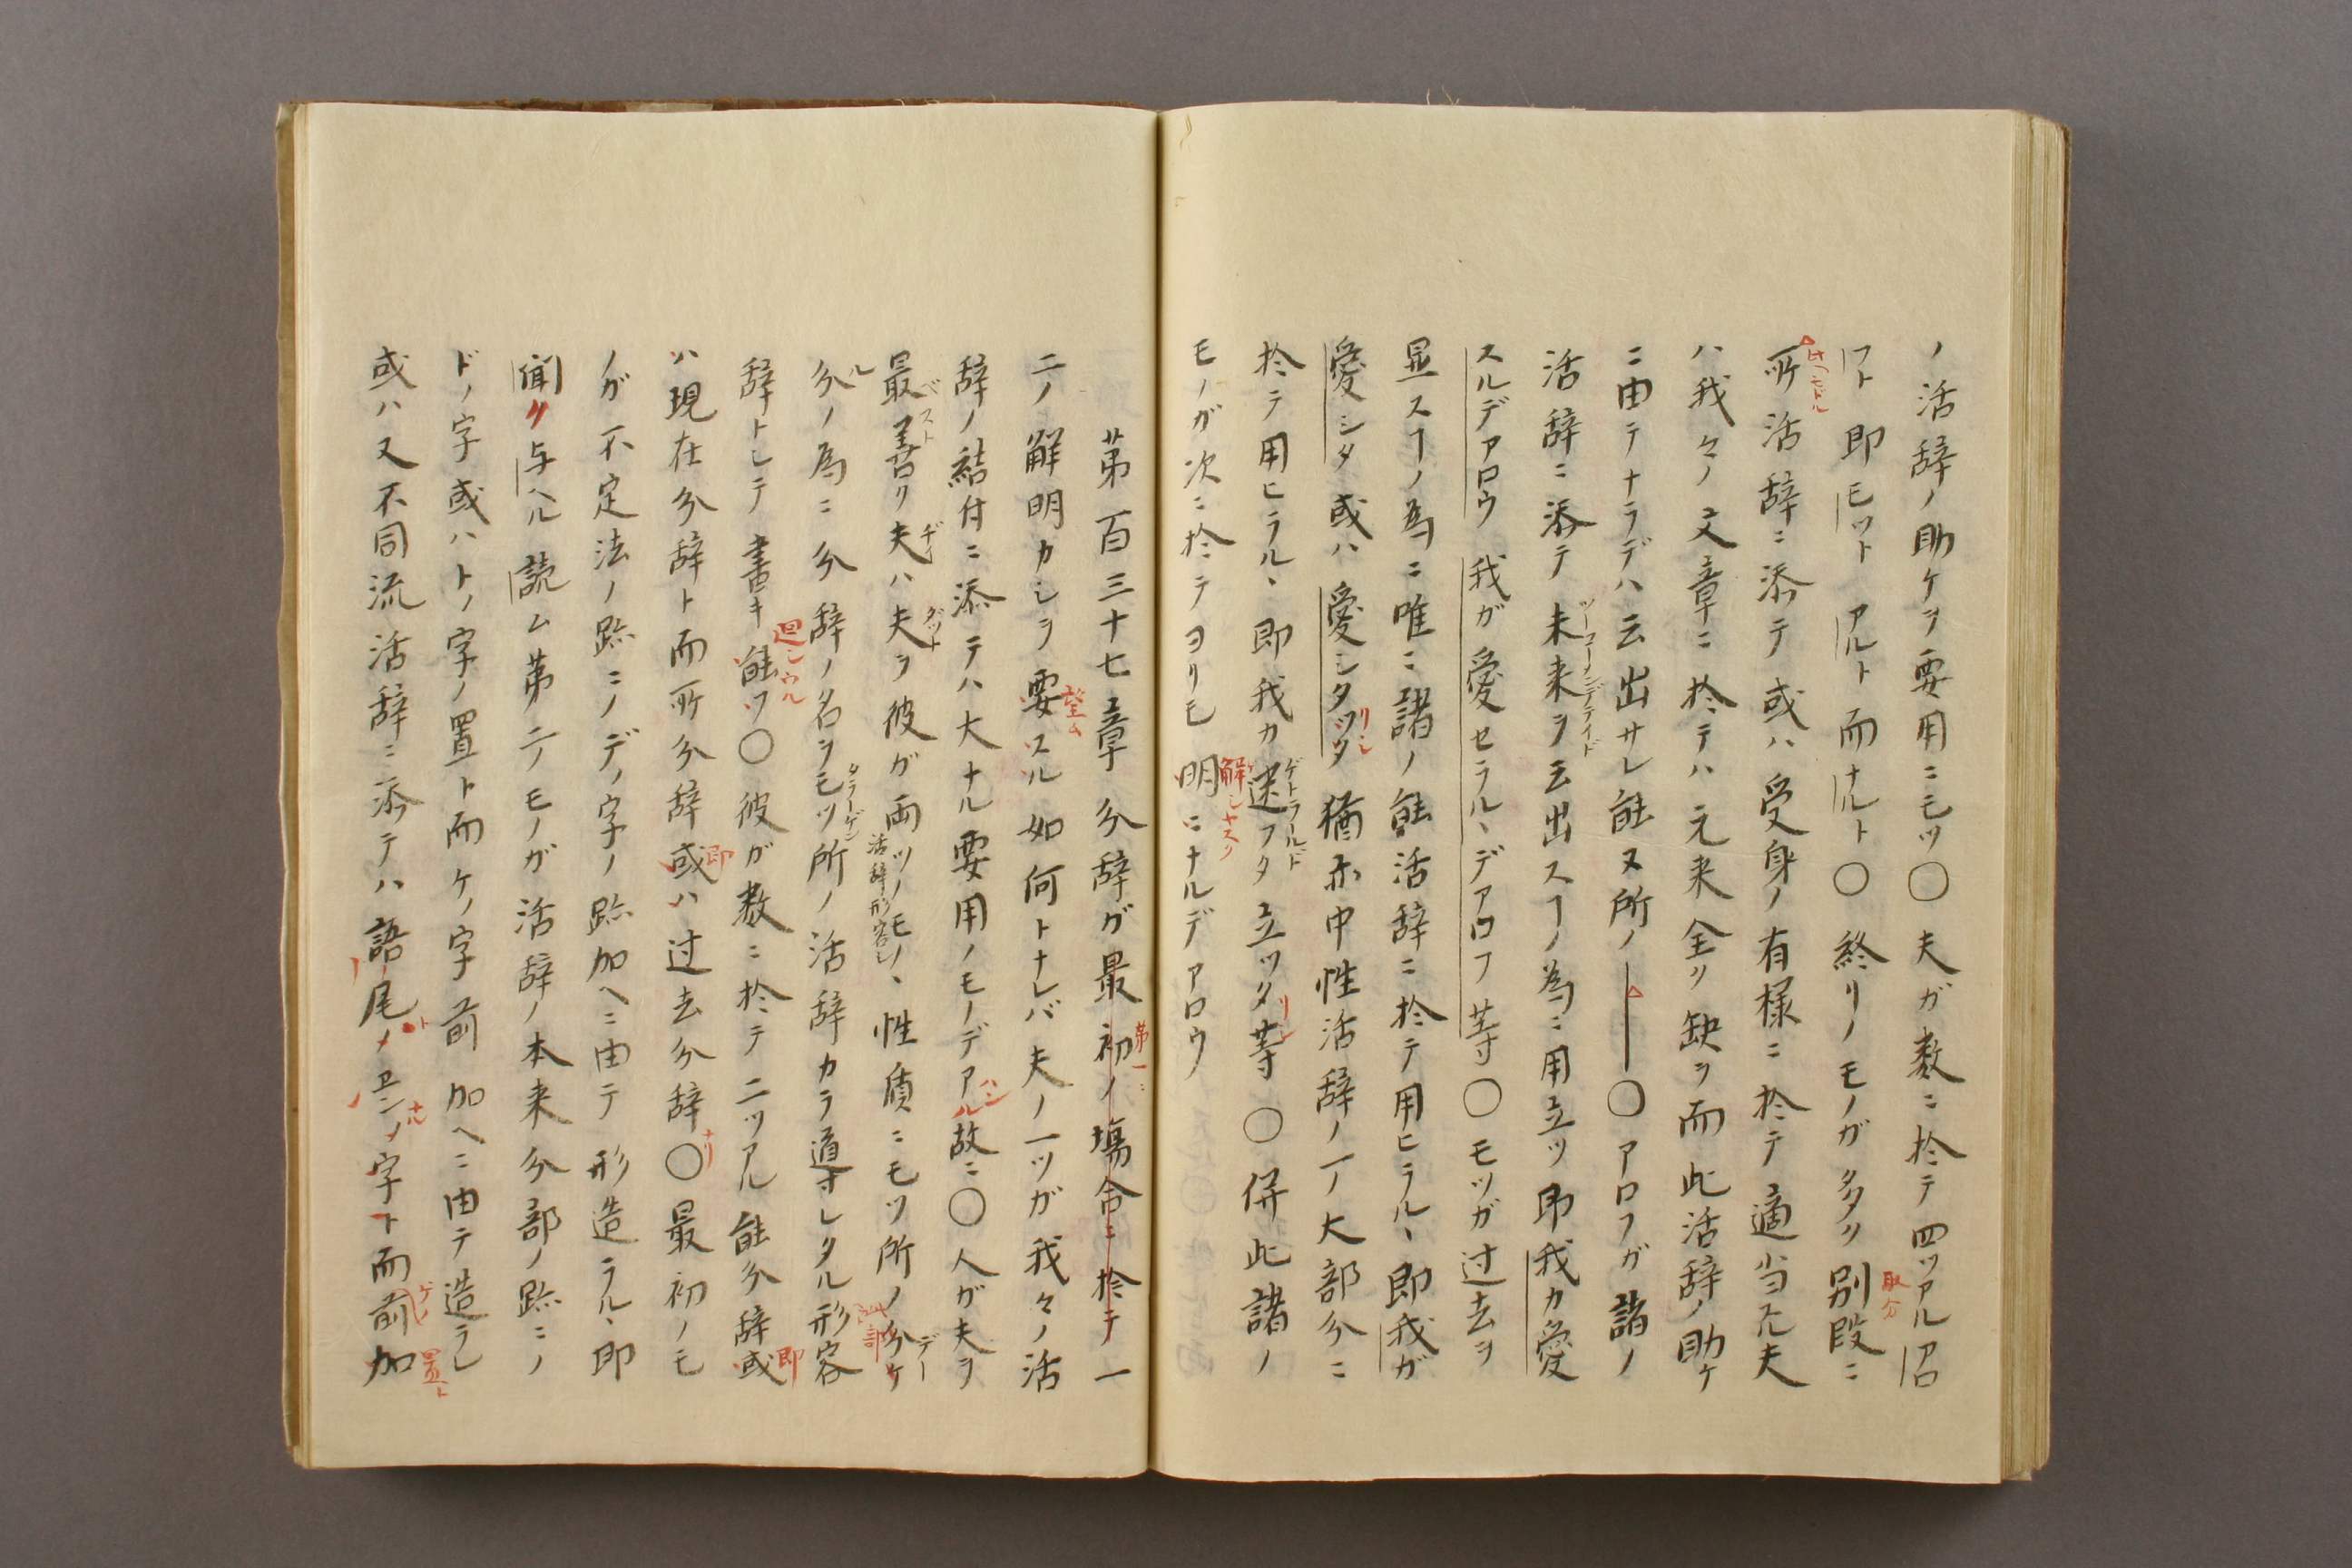 ノ活辞ノ助ケヲ要用ニモツ〇夫ガ数ニ於テ四ツアルアロ
フト即モツトアルト而ナルト〇終リノモノガ多分別段ニ
所活辞ニ添テ或ハ受身ノ有様ニ於テ適当スル夫
ハ我々ノ文章ニ於テハ元来全ク缺ヲ而此活辞ノ助ケ
ニ由テナラデハ云出サレ能ヌ所ノ―〇アロフガ諸ノ
活辞ニ添テ未来ヲ云出スヿノ為ニ用立ツ即我カ愛
スルデアロウ我ガ愛セラルヽデアロフ等〇モツガ过去ヲ
显スヿノ為ニ唯ニ諸ノ能活辞ニ於テ用ヒラルヽ即我ガ
愛シタ或ハ愛シタツタ猶亦中性活辞ノ一ノ大部分ニ
於テ用ヒラルヽ即我カ迷フタ立ツタ等〇併此諸ノ
モノガ次ニ於テヨリモ明ニナルデアロウ
第百三十七章分辞ガ最初ノ場合ニ於テ一
ニノ解明カシヲ要スル如何トナレバ夫ノ一ツガ我々ノ活
辞ノ結付ニ添テハ大ナル要用ノモノデアル故ニ〇人ガ夫ヲ
最善ク夫ハ夫ヲ彼ガ両ツノモノヽ性質ニモツ所ノ分ケ
分ノ為ニ分辞ノ名ヲモツ所ノ活辞カラ導レタル形容
辞トシテ書キ能フ〇彼ガ数ニ於テ二ツアル能分辞或
ハ現在分辞ト而所分辞或ハ过去分辞〇最初ノモ
ノガ不定法ノ跡ニノデノ字ノ跡加ヘニ由テ形造ラルヽ即
聞ク与ヘル読ム第二ノモノガ活辞ノ本来分部ノ跡ニノ
ドノ字或ハトノ字ノ置ト而ケノ字前加ヘニ由テ造ラレ
或ハ又不同流活辞ニ添テハ語尾ノエンノ字ト而前加